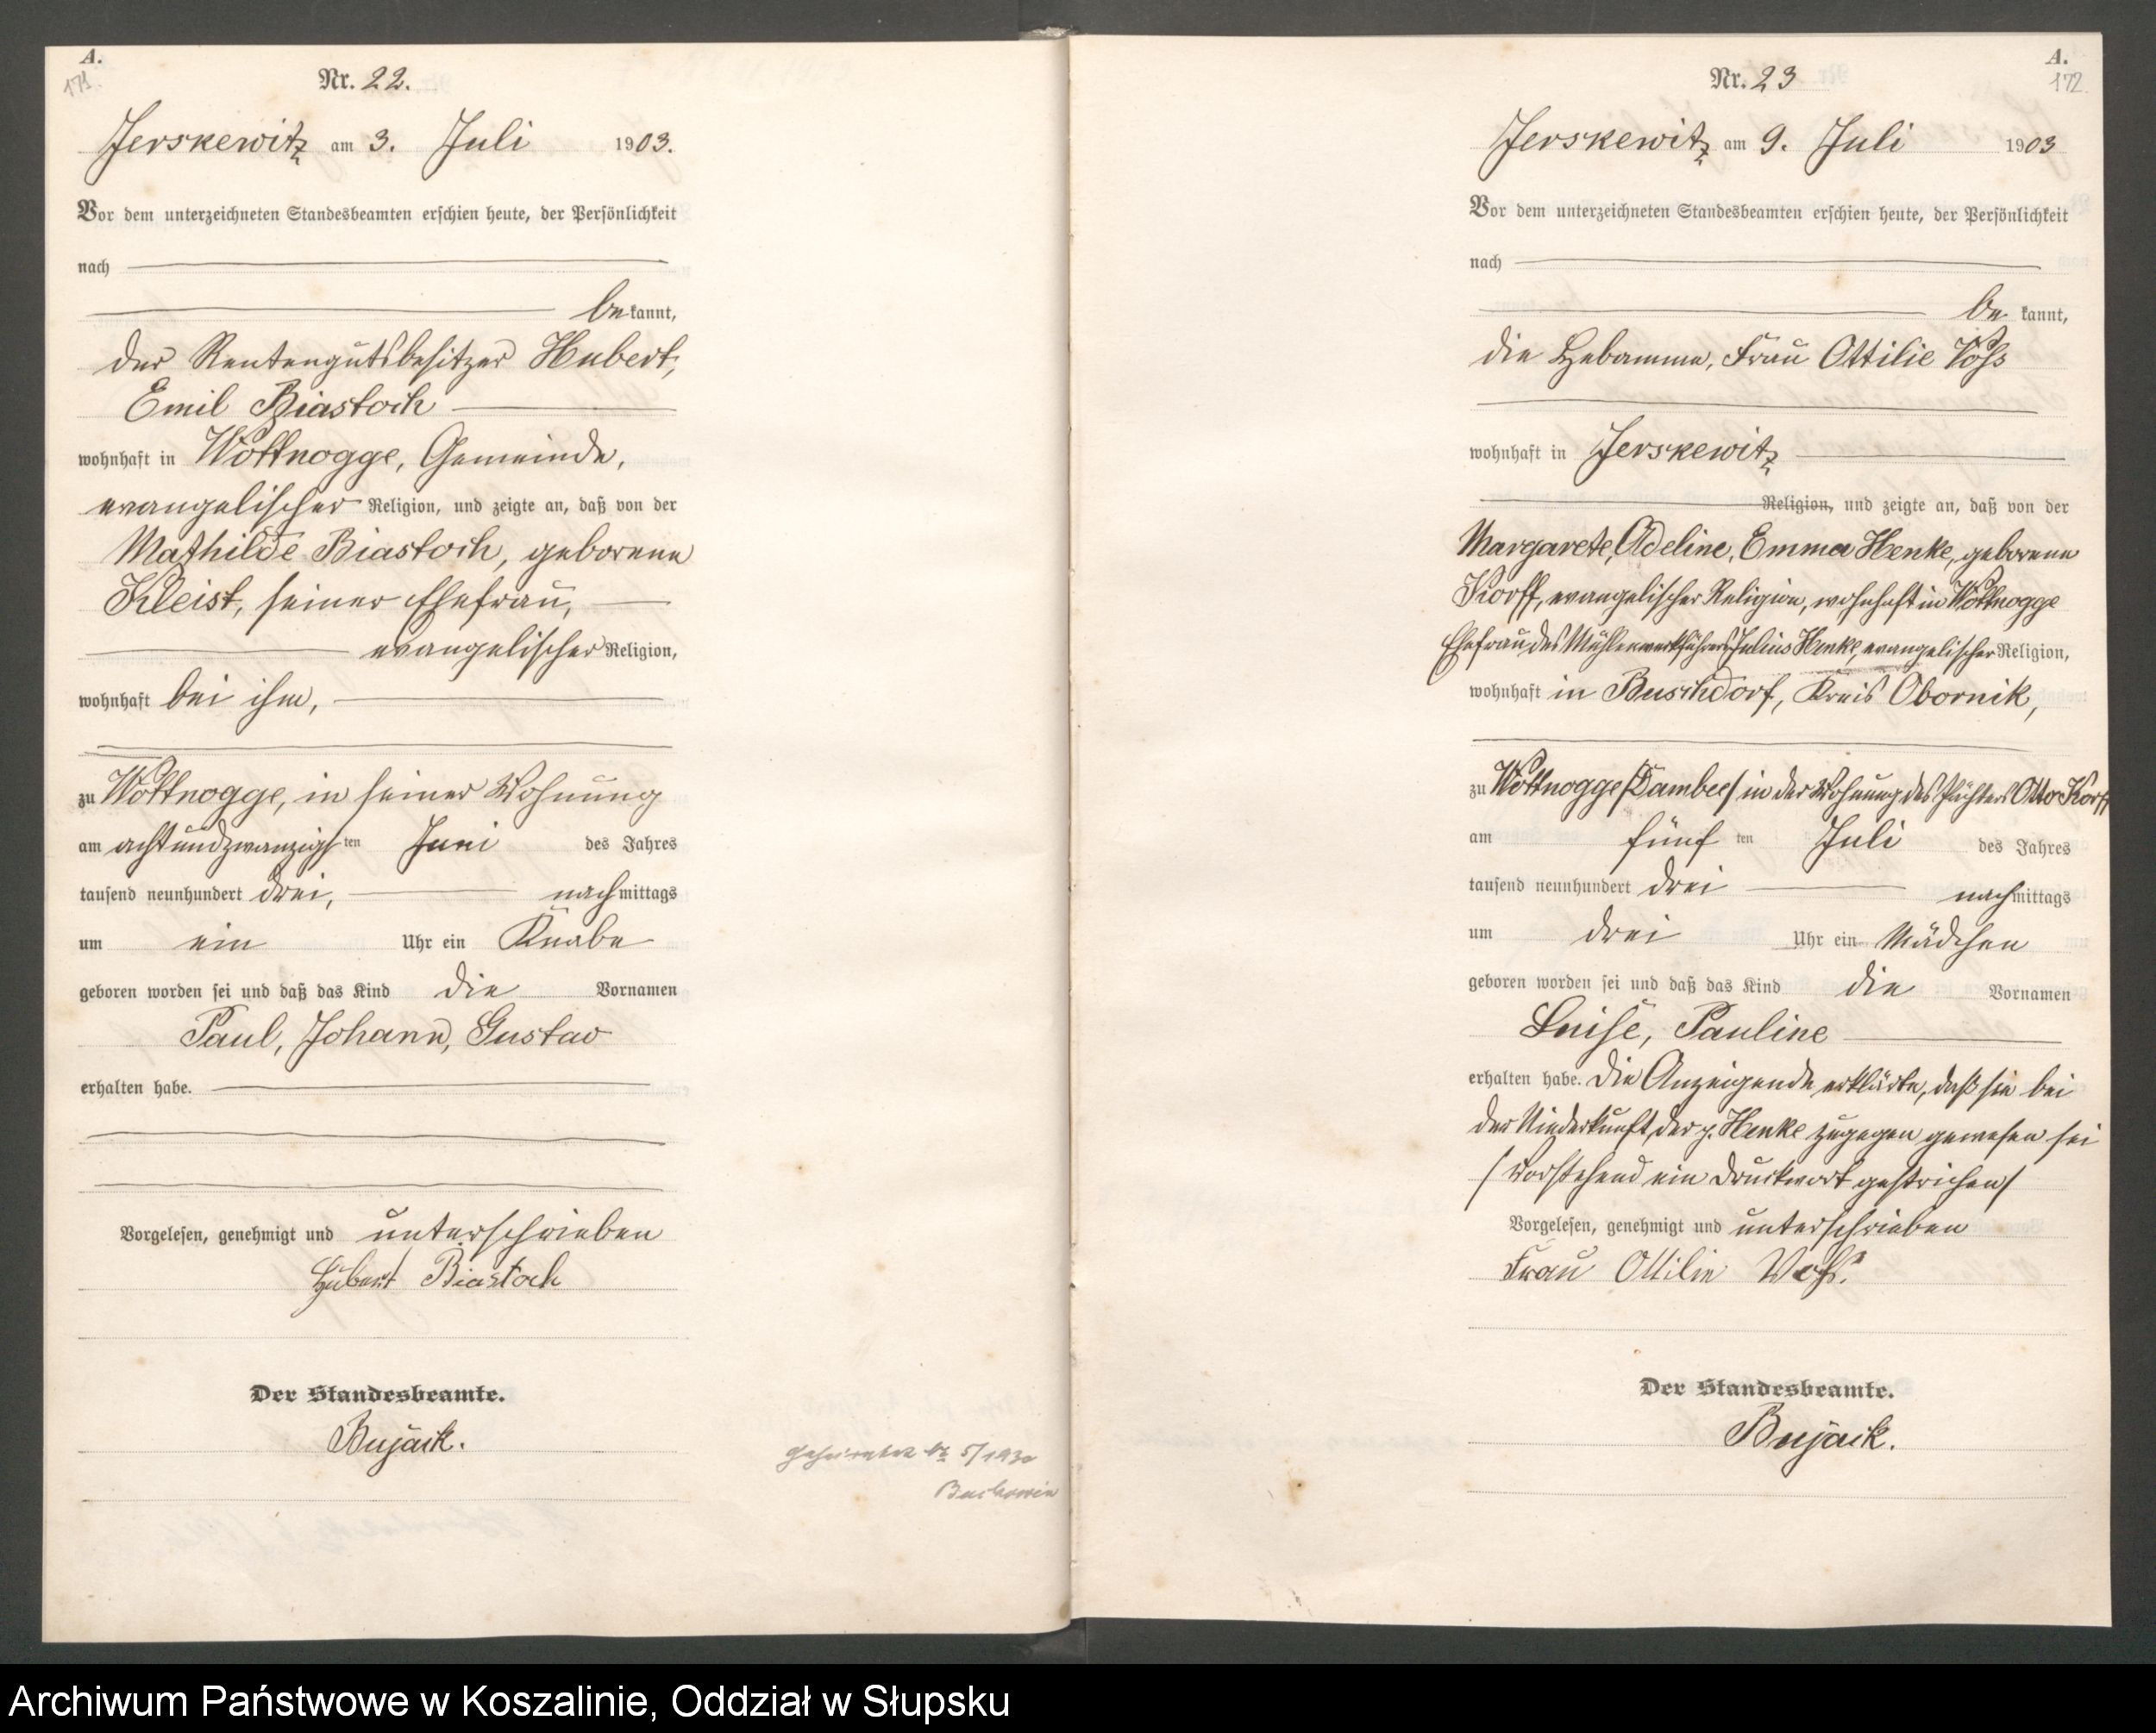 A.
171.
Nr. 22.
Jerskewitz am 3. Juli 1903.
Vor dem unterzeichneten Standesbeamten erschien heute, der Persönlichkeit
nach
bekannt,
der Rentengutsbesitzer Hubert,
Emil Biastoch
wohnhaft in Wottnogge, Gemeinde,
evangelischer Religion, und zeigte an, daß von der
Mathilde Biastoch, geborene
Kleist, seiner Ehefrau,
evangelischer Religion,
wohnhaft bei ihm,
zu Wottnogge, in seiner Wohnung
am achtundzwanzigsten Juni des Jahres
tausend neunhundert drei, nachmittags
um ein Uhr ein Knabe
geboren worden sei und daß das Kind die Vornamen
Paul, Johann, Gustav
erhalten habe.
Vorgelesen, genehmigt und unterschrieben
Hubert Biastoch
Der Standesbeamte.
Bujack.
Geheiratet Nr 5/1930
Buckowin
A.
172
Nr. 23
Jerskewitz am 9. Juli 1903
Vor dem unterzeichneten Standesbeamten erschien heute, der Persönlichkeit
nach
be kannt,
die Hebamme, Frau Ottilie Voß
wohnhaft in Jerskewitz
Religion, und zeigte an, daß von der
Margarete, Adeline, Emma Henke, geborene
Korff, evangelischer Religion, wohnhaft in Wottnogge
Ehefrau des Mühlenwerkführers Julius Henke, evangelischer Religion,
wohnhaft in Buschdorf, Kreis Obornik,
zu Wottnogge /Dambee/ in der Wohnung des Pächters Otto Korff
am fünf ten Juli des Jahres
tausend neunhundert drei nachmittags
um drei Uhr ein Mädchen
geboren worden sei und daß das Kind die Vornamen
Luise, Pauline
erhalten habe. Die Anzeigende erklärte, daß sie bei
der Niederkunft der p. Henke zugegen gewesen sei
/ Vorstehend ein Druckwort gestrichen /
Vorgelesen, genehmigt und unterschrieben
Frau Ottilie Voß.
Der Standesbeamte.
Bujack.
Archiwum Państwowe w Koszalinie, Oddział w Słupsku